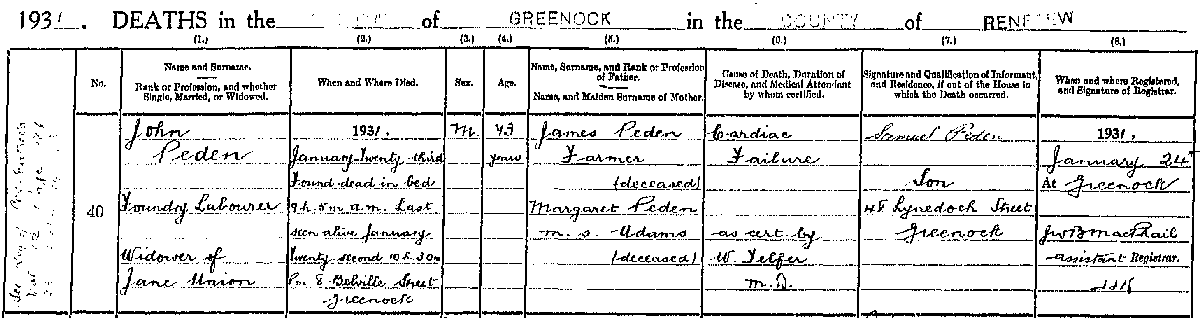 1931. DEATHS in the of GREENOCK in the COUNTY of RENFREW
(1.) (2.) (3.) (4.) (5.) (6.) (7.) (8.)
No.
Name and Surname.
Rank or Profession, and whether
Single, Married, or Widowed.
When and Where Died.
Sex.
Age.
Name, Surname, and Rank or Profession
of Father.
Name, and Maiden Surname of Mother.
Cause of Death, Duration of
Disease, and Medical Attendant
by whom certified.
Signature and Qualification of Informant,
and Residence, if out of the House in
which the Death occurred.
When and where Registered,
and Signature of Registrar.
40
John
Peden
Foundry Labourer
Widower of
Jane Union
1931.
January Twenty third
Found dead in bed
9 h. 5 m. a.m. Last
seen alive January
Twenty second 10 h. 30
Belville Street
Greenock
M
43
years
James Peden
Farmer
(deceased)
Margaret Peden
m. s. Adams
(deceased)
Cardiac
Failure
as cert by
W Telfer
M.D.
Samuel Peden
Son
48 Lynedoch Street
Greenock
1931.
January 24th
At Greenock
JWB MacPhail
assistant Registrar.